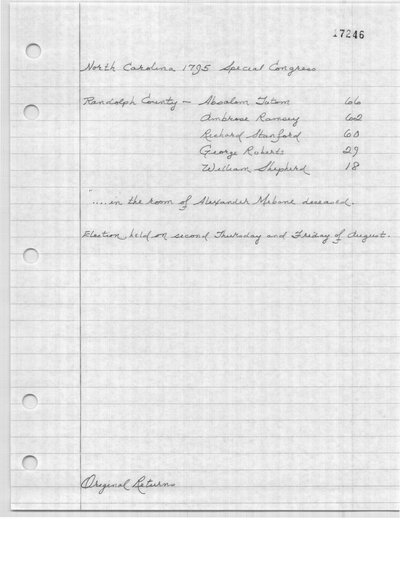 17246
North Carolina 1795 Special Congress
Randolph County — Absalom Tatom 66
Ambrose Ramsey 62
Richard Stanford 60
George Roberts 29
William Shepherd 18
"....in the room of Alexander Mebane deceased.
Election held on second Thursday and Friday of August.
Original Returns